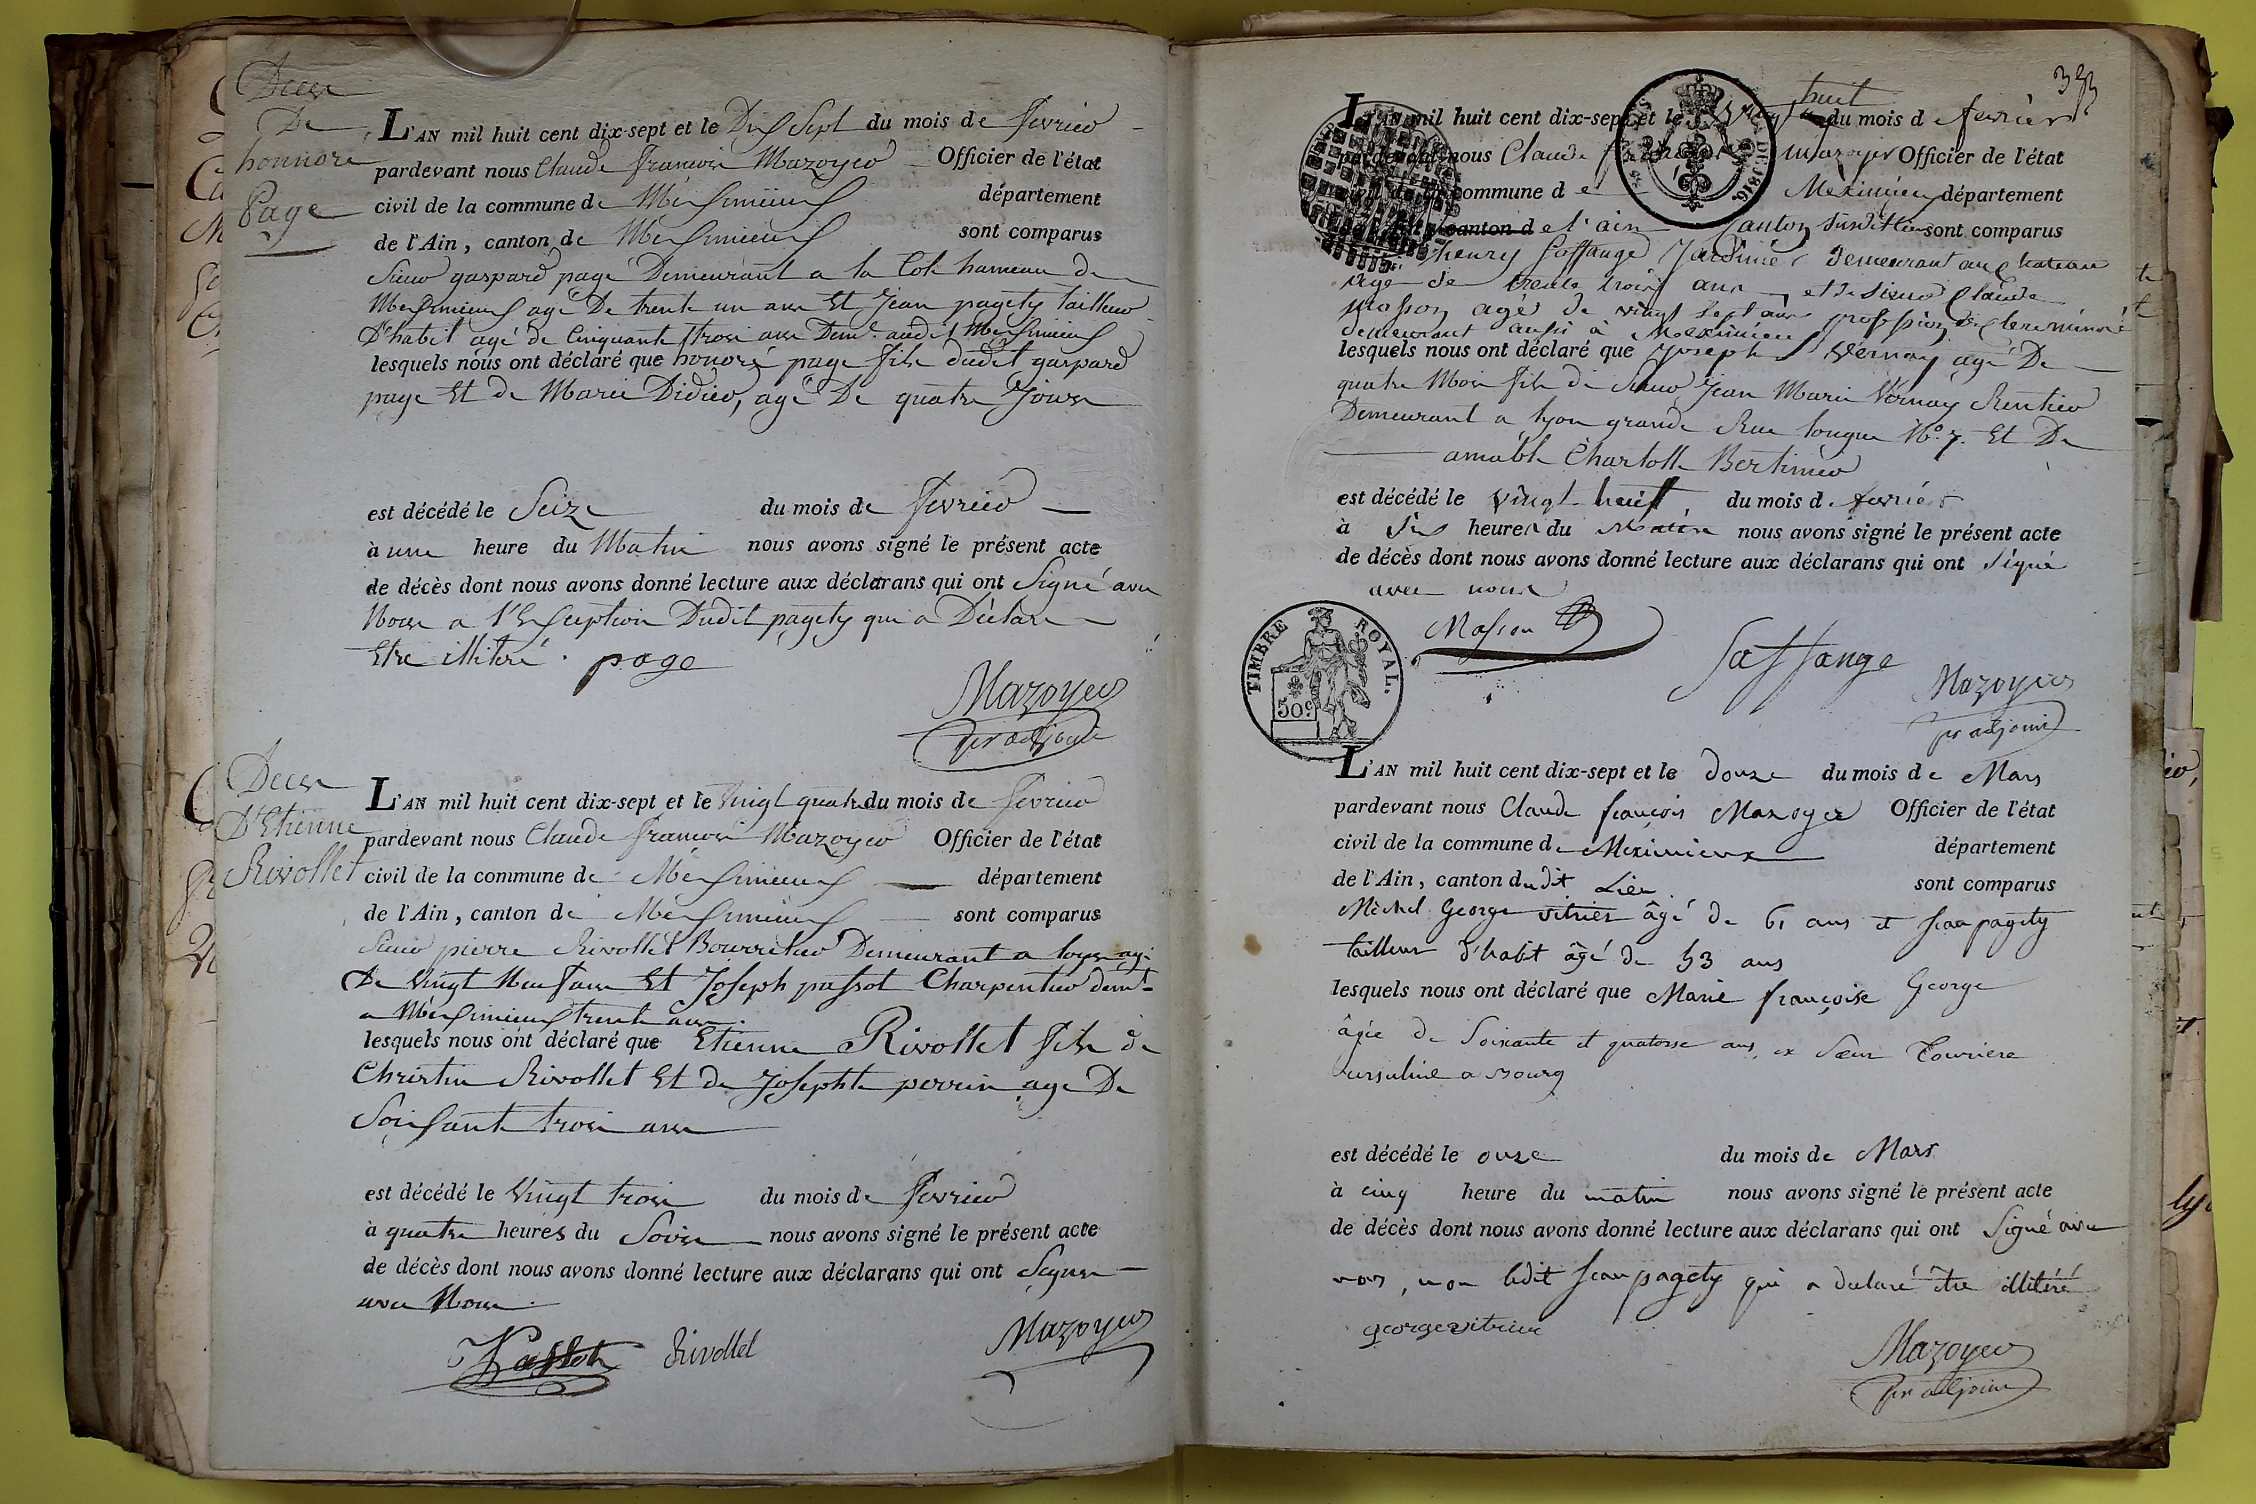 Deces
De
honnore
Page
L'AN mil huit cent dix-sept et le Dix Sept du mois de fevrier
pardevant nous Claude françois Mazoyer Officier de l'état
civil de la commune de Meximieux département
de l'Ain, canton de Meximieux sont comparus
Sieur gaspard page Demeurant a la Cote hameau de
Meximieux agé De trente un ans Et Jean pagety tailleur
D'habit agé de Cinquante trois ans Demt. audit Meximieux
lesquels nous ont déclaré que honoré page fils dudit gaspard
page Et de Marie Didier, agé De quatre Jours
est décédé le Seize du mois de fevrier
à une heure du Matin nous avons signé le présent acte
de décès dont nous avons donné lecture aux déclarans qui ont Signé avec
Nous a l'Exception Dudit pagety qui a Déclaré
Etre illiteré. page
Mazoyer
pr adjoint
Deces
D'Etienne
Rivollet
L'AN mil huit cent dix-sept et le Vingt quatre du mois de fevrier
pardevant nous Claude françois Mazoyer Officier de l'état
civil de la commune de Meximieux département
de l'Ain, canton de Meximieux sont comparus
Sieur pierre Rivollet Bourrelier Demeurant a loyes agé
De Vingt Neuf ans Et Joseph passot Charpentier demt.
a Meximieux trente ans.
lesquels nous ont déclaré que Etienne Rivollet fils de
Christin Rivollet Et de Josephte perrin age De
Soixante trois ans
est décédé le Vingt trois du mois de fevrier
à quatre heures du Soir nous avons signé le présent acte
de décès dont nous avons donné lecture aux déclarans qui ont Signer
avec Nous.
Passot Rivollet Mazoyer
353
L'AN mil huit cent dix-sept et le Vingt huit du mois de fevrier
pardevant nous Claude françois Mazoyer Officier de l'état
commune de Meximieux département
canton de l'ain Canton Susdit sont comparus
henry Saffange Jardinié Demeurant au Chateau
age de trente trois ans et de Sieur Claude
Masson agé de vingt Sept ans profession de Clerc minoré
demeurant aussi à Meximieux
lesquels nous ont déclaré que Joseph Vernay agé De
quatre Mois fils de Sieur Jean Marie Vernay Rentier
Demeurant a lyon grande Rue longue No. 7. Et De
amable Charlotte Bertinier
est décédé le vingt huit du mois de fevrier
à Six heures du Matin nous avons signé le présent acte
de décès dont nous avons donné lecture aux déclarans qui ont Signé
avec nous
TIMBRE ROYAL.
50c
Masson
Saffange
Mazoyer
pr adjoint
L'AN mil huit cent dix-sept et le douze du mois de Mars
pardevant nous Claude françois Mazoyer Officier de l'état
civil de la commune de Meximieux département
de l'Ain, canton dudit Lieu sont comparus
Michel George vitrier âgé de 61 ans et Jean pagety
tailleur d'habit âgé de 53 ans
lesquels nous ont déclaré que Marie françoise George
âgée de Soixante et quatorze ans, ex Sœur Tourriere
ursuline a Bourg
est décédé le onze du mois de Mars
à cinq heure du matin nous avons signé le présent acte
de décès dont nous avons donné lecture aux déclarans qui ont Signé avec
nous, non ledit Jean pagety qui a declaré être illitéré
george vitrier
Mazoyer
pr adjoint